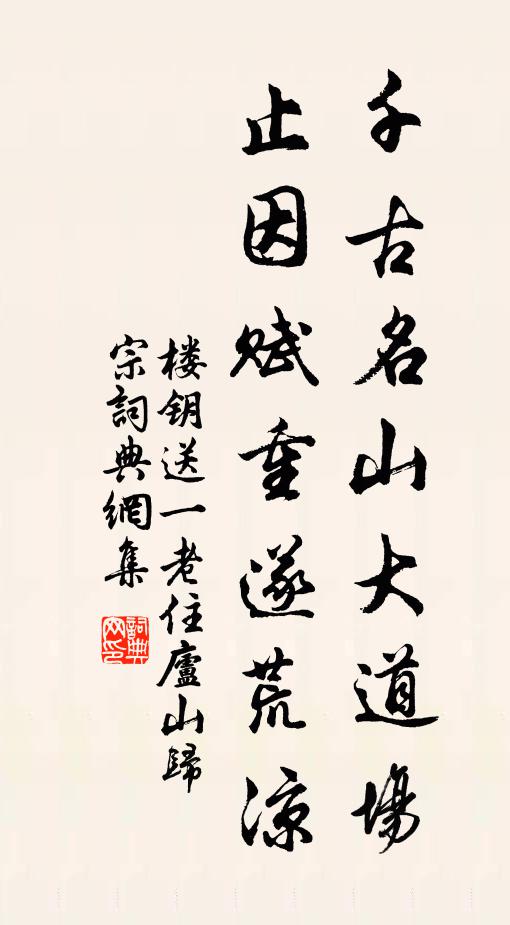 千古名山大道場
止因賦重遂荒涼
楼钥送一老住廬山歸
宗詞典網集
詞典
网印